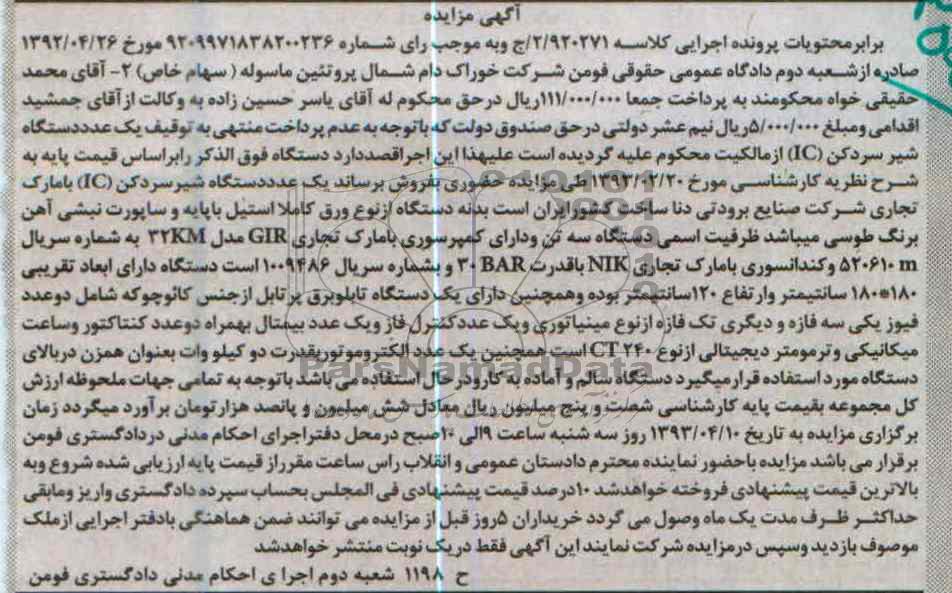 آگهی مزایده
برابرمحتویات پرونده اجرایی کلاسه ۲/۹۲۰۲۷۱/ج وبه موجب رای شماره ۹۲۰۹۹۷۱۸۳۸۲۰۰۲۳۶ مورخ ۱۳۹۲/۰۴/۲۶
صادره ازشعبه دوم دادگاه عمومی حقوقی فومن شرکت خوراک دام شمال پروتئین ماسوله ( سهام خاص) ۲- آقای محمد
حقیقی خواه محکومند به پرداخت جمعا ۱۱۱/۰۰۰/۰۰۰ریال درحق محکوم له آقای یاسر حسین زاده به وکالت ازآقای جمشید
اقدامی ومبلغ ۵/۰۰۰/۰۰۰ریال نیم عشر دولتی درحق صندوق دولت که باتوجه به عدم پرداخت منتهی به توقیف یک عدددستگاه
شیر سردکن (IC) ازمالکیت محکوم علیه گردیده است علیهذا این اجراقصددارد دستگاه فوق الذکر رابراساس قیمت پایه به
شرح نظریه کارشناسی مورخ ۱۳۹۳/۰۲/۲۰ طی مزایده حضوری بفروش برساند یک عدددستگاه شیرسردکن (IC) بامارک
تجاری شرکت صنایع برودتی دنا ساخت کشورایران است بدنه دستگاه ازنوع ورق کاملا استیل باپایه و ساپورت نبشی آهن
برنگ طوسی میباشد ظرفیت اسمی دستگاه سه تن ودارای کمپرسوری بامارک تجاری GIR مدل ۳۲KM به شماره سریال
۵۲۰۶۱۰ m وکندانسوری بامارک تجاری NIK باقدرت ۳۰ BAR و بشماره سریال ۱۰۰۹۴۸۶ است دستگاه دارای ابعاد تقریبی
۱۸۰*۱۸۰ سانتیمتر وارتفاع ۱۲۰سانتیمتر بوده وهمچنین دارای یک دستگاه تابلوبرق پرتابل ازجنس کائوچوکه شامل دوعدد
فیوز یکی سه فازه و دیگری تک فازه ازنوع مینیاتوری ویک عددکنترل فاز ویک عدد بیمتال بهمراه دوعدد کنتاکتور وساعت
میکانیکی وترمومتر دیجیتالی ازنوع CT ۲۴۰ است همچنین یک عدد الکتروموتوربقدرت دو کیلو وات بعنوان همزن دربالای
دستگاه مورد استفاده قرارمیگیرد دستگاه سالم و آماده به کارودرحال استفاده می باشد باتوجه به تمامی جهات ملحوظه ارزش
کل مجموعه بقیمت پایه کارشناسی شصت و پنج میلیون ریال معادل شش میلیون و پانصد هزارتومان برآورد میگردد زمان
برگزاری مزایده به تاریخ ۱۳۹۳/۰۴/۱۰ روز سه شنبه ساعت ۹الی ۱۰صبح درمحل دفتراجرای احکام مدنی دردادگستری فومن
برقرار می باشد مزایده باحضور نماینده محترم دادستان عمومی و انقلاب راس ساعت مقرراز قیمت پایه ارزیابی شده شروع وبه
بالاترین قیمت پیشنهادی فروخته خواهدشد ۱۰درصد قیمت پیشنهادی فی المجلس بحساب سپرده دادگستری واریز ومابقی
حداکثر ظرف مدت یک ماه وصول می گردد خریداران ۵روز قبل از مزایده می توانند ضمن هماهنگی بادفتر اجرایی ازملک
موصوف بازدید وسپس درمزایده شرکت نمایند این آگهی فقط دریک نوبت منتشر خواهدشد
ح ۱۱۹۸ شعبه دوم اجرا ی احکام مدنی دادگستری فومن
ParsNamadData